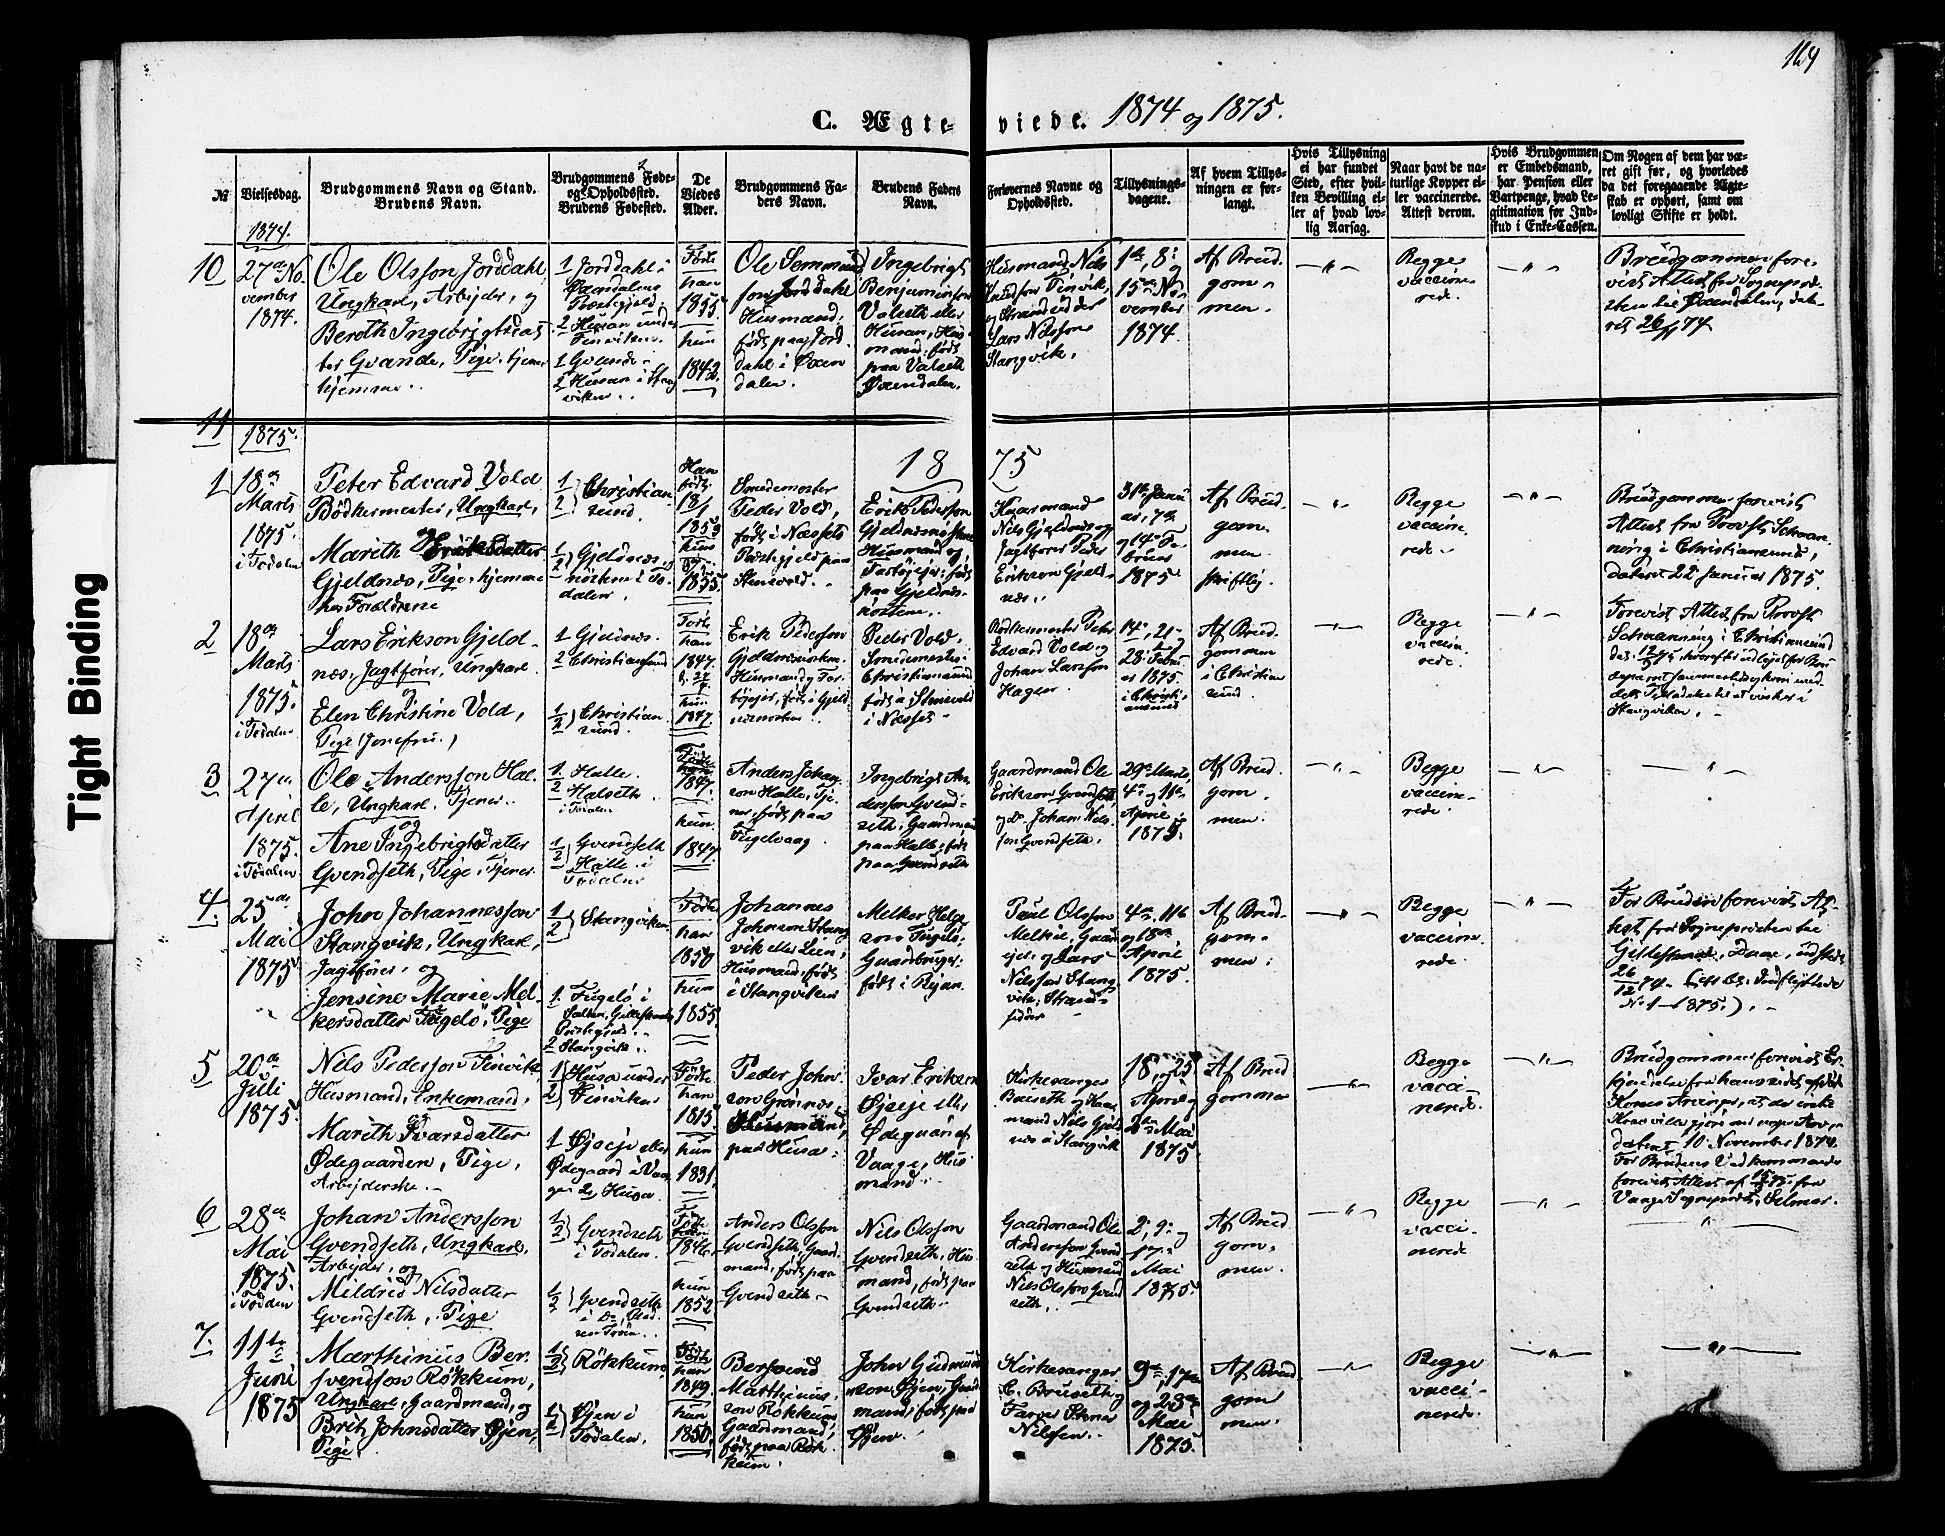 169
C. Ægte- viede. 1874 og 1875.
№
Vielsesdag.
Brudgommens Navn og Stand.
Brudens Navn.
Brudgommens Føde-
og Opholdssted.
Brudens Fødested.
De
Viedes
Alder.
Brudgommens Fa-
ders Navn.
Brudens Faders
Navn.
Forlovernes Navne og
Opholdssted.
Tillysnings-
dagene.
Af hvem Tillys-
ningen er for-
langt.
Hvis Tillysning
ei har fundet
Sted, efter hvil-
ken Bevilling el-
ler af hvad lov-
lig Aarsag.
Naar havt de na-
turlige Kopper el-
ler vaccinerede.
Attest derom.
Hvis Brudgommen
er Embedsmand,
har Pension eller
Vartpenge, hvad Le-
gitimation for Ind-
skud i Enke-Cassen.
Om Nogen af dem har væ-
ret gift før, og hvorledes
da det foregaaende Ægte-
skab er ophørt, samt om
lovligt Skifte er holdt.
1874.
10
27de No
vember
1874.
Ole Olsson Jorddahl
Ungkarl, Arbejder, og
Beroth Ingebrigtsdat
ter Gvande, Pige, hjemme
hjemme.
1 Jorddahl i
Øxendalens
Præstegjeld.
2 Husan under
Finviken.
1 Gvande
2 Husan i Stang
viken.
Født
han
1855.
hun
1842.
Ole Semmund
son Jorddahl
Husmand,
født paa Jord
dahl i Øxen
dalen.
Ingebrigt
Benjaminson
Valseth eller
Husan, Hus
mand, født
paa Valseth
Øxendalen.
Husmand Nils
Knudson Finvik,
og Strandsidder
Lars Nilsson
Stangvik.
1ste, 8de og
15de No
vember
1874.
Af Brud
gom-
men.
Begge
vaccine
rede.
Brudgommen fore-
vist Attest fra Sognepræ-
sten til Øxendalen, date-
ret 26/11 74.
11
1875.
18 75
1
18de
Marts
1875.
i Tødalen
Peter Edvard Vold
Bødkermester, Ungkarl,
og
Mareth Eriksdatter
Gjeldnæs, Pige, hjemme
hos Forældrene
1/2 } Christian
sund.
1/2 } Gjeldnæs
nösten i Tø
dalen.
Han
født
1853
hun
1855.
Smedemester
Peder Vold,
født i Næssets
Præstegjeld paa
Stensvold.
Erik Pederson
Gjeldnæsnösten
Husmand og
Fartøjejer, født
paa Gjeldnæs-
nösten.
Huusmand
Nils Gjeldnæs og
Jagtfører Peder
Erikson Gjeld-
næs.
31te Janu
ar, 7de
og 14de Fe
bruar
1875.
Af Brud
gom-
men
skriftlig.
Begge
vaccine
rede.
Brudgommen forevist
Attest fra Provst Schaan-
ning i Christianssund,
dateret 22 Januar 1875.
2
18de
Marts
1875.
i Tødalen
Lars Erikson Gjeld
næs, Jagtfører, Ungkarl
og
Elen Christine Vold,
Pige (Jomfru.)
1 Gjeldnæs.
2 Christianssund
1/2 } Christian
sund.
Født
han
1847.
hun
1847.
Erik Pederson
Gjeldnæsnösten.
Husmand og Far
töjejer, født i Gjeld
næsnösten.
Peder Vold,
Smedemester i
Christianssund
født i Stensvold
i Næsset.
Bødkermester Peter
Edvard Vold og
Johan Larsson
Hagen
14de, 21de og
28 Febru
ar 1875
i Christi
anssund
Af Brud
gommen
i Christian
sund.
Begge
vaccine
rede.
Forevist Attest fra Provst
Schaanning i Christianssund
Stangviken.
3
27de
April
1875.
i Tødalen
Ole Andersson Hal-
le, Ungkarl, Tjener.
og
Ane Ingebrigtsdatter
Gvendseth, Pige, Tjener
1 Halle.
2 Halseth
i Tødalen
1/2 } Gvendseth
Halle i
Tødalen
Født
han
1847.
hun
1847.
Anders Johan-
son Halle, Tje-
ner, født paa
Fugelvaag.
Ingebrigt An
dersson Gvend-
seth, Gaardmand
paa Halle, født
paa Gvendseth
Gaardmand Ole
Erikson Gvendseth,
og Do Johan Nils-
son Gvendseth.
29de Marts,
4de og 11te
April
1875.
Af Brud
gom-
men.
Begge
vaccine-
rede.
4.
25de
Mai
1875
John Johannesson
Stangvik, Ungkarl,
Jagtfører, og
Jensine Marie Mel-
kersdatter Fugelö, Pige
1/2 } Stangviken
1 Fugelö i
Salten, Gildeskaals
Præstegjeld.
2 Stangvik.
Født
han
1850
hun
1855.
Johannes
Johnson Stang
vik eller Lein,
Husmand, født
i Stangviken
Melker Helge
son Fugelö,
Gaardbruger.
født i Rejan.
Paul Olsson
Melkil, Gaard
ejer, og Lars
Nilsson Stang
vik, Strand-
sidder
4de, 11te
og 18de
April
1875.
Af Brud-
gom-
men.
Begge
vaccine
rede.
For Bruden forevist At-
test fra Sognepræsten til
Gildeskaal, Daae, udstedt
26/12 74. (
No 1-1875).
5
20de
Juli
1875.
Nils Pederson Finvik,
Husmand, Enkemand,
og
Mareth Ivarsdatter
Ødegaarden, Pige,
Arbejderske.
1/2 } Husa under
Finviken
1 Øjseje eller
Ødegaard i Vaa
ge 2, Husa.
Født
han
1815
hun
1831.
Peder John
son Grönnæs,
Husmand,
paa Husa.
Ivar Erikson
Øjseje eller
Ødegaard af
Vaage, Hus
mand.
Kirkesanger
Bruseth og Hus
mand Nils Gjeld
næs i Stangvik
18, og 25
April og
2den Mai
1875
Af Brud
gommen
Begge
vacci-
nerede.
Brudgommen forevist Er-
kjendelse fra hans sidst afdøde
Kones Arvinger, at de intet
Krav ville gjøre
dateret 10 November 1874.
For Brudens Vedkommende
forevist Attest af fra
Vaage Sognepræst, Selmer.
6
28de
Mai
1875.
i Tødalen
Johan Andersson
Gvendseth, Ungkarl,
Arbejder, og
Mildrid Nilsdatter
Gvendseth, Pige
1/2 } Gvendseth
i Tødalen.
1/2 } Gvendseth
i Do,
Født
1846.
hun
1852
Anders Olsson
Gvendseth, Gaard-
mand, født paa
Gvendseth
Nils Olsson
Gvendseth, Hus
mand, født paa
Gvendseth.
Gaardmand Ole
Andersson Gvend
seth og Husmand
Nils Olsson Gvend
seth.
2, 9de og
17de
Mai
1875.
Af Brud
gom-
men.
Begge
vacci-
nerede
7.
11te
Juni
1875
Marthinus Ber-
svendson Rökkum,
Ungkarl, Gaardmand, og
Brit Johnsdatter Øjen,
Pige.
1/2 } Rökkum,
1/2 } Øjen i
Tødalen.
Født
han
1849.
hun
1850.
Bersvend
Marthinus-
son Rökkum
Gaardmand,
født paa Rök
kum.
John Gudmund
son Øjen, Gaard
mand, født paa
Øjen.
Kirkesanger
E. Bruseth og
Farver Stener
Nilsen.
9de, 17de
og 23de
Mai
1875.
Af Brud
gom
men.
Begge
vacci-
nerede.
Tight Binding